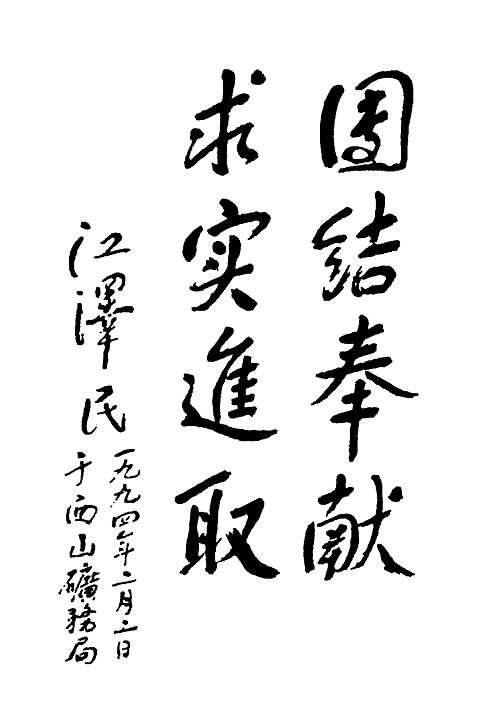 團結奉献
求实進取
江澤民
一九九四年二月二日
于西山礦務局